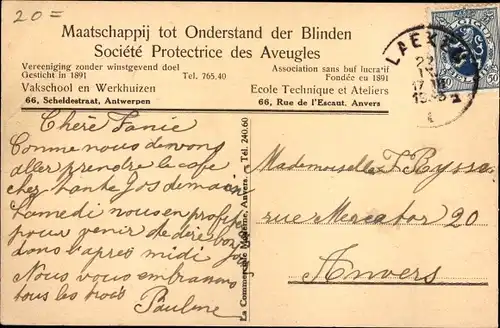 20=
Maatschappij tot Onderstand der Blinden
Société Protectrice des Aveugles
Vereeniging zonder winstgevend doel
Gesticht in 1891
Tel. 765.40
Association sans but lucratif
Fondée eu 1891
Vakschool en Werkhuizen
66, Scheldestraat, Antwerpen
Ecole Technique et Ateliers
66, Rue de l'Escaut, Anvers
LAEKEN
50
Chère Fanie
Comme nous devons
aller prendre le café
chez tante Jos demain
samedi nous en profite
pour venir de dire bonjour
dans l'après midi
Nous vous embrassons
tous les trois
Paulene
La Commerciale Moderne, Anvers. — Tel. 240.60
Mademoiselle F. Reysse
rue Mercator 20
Anvers